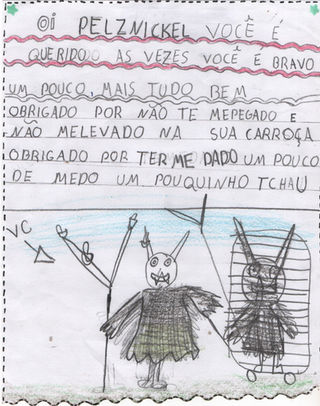 OI PELZNICKEL VOCÊ É
QUERIDO AS VEZES VOCÊ É BRAVO
UM POUCO, MAIS TUDO BEM
OBRIGADO POR NÃO TE MEPEGADO E
NÃO MELEVADO NA SUA CARROÇA
OBRIGADO POR TER ME DADO UM POUCO
DE MEDO UM POUQUINHO TCHAU
VC